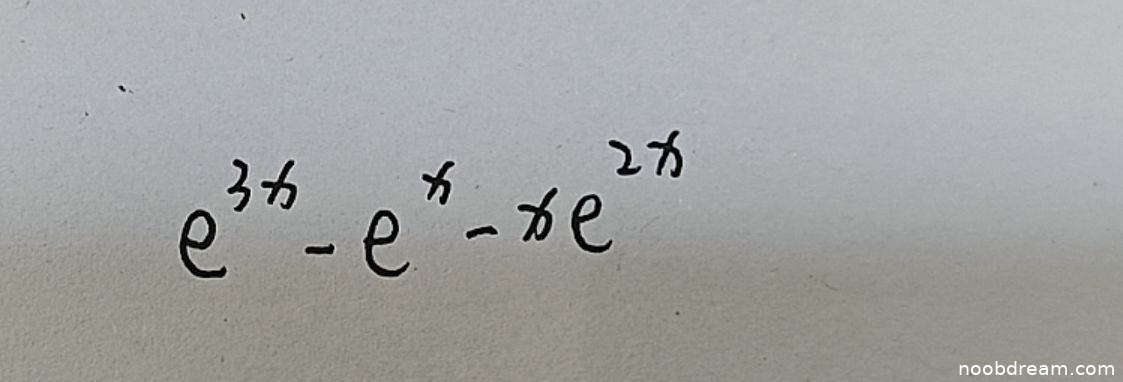 e^{3x} - e^{x} - xe^{2x}
noobdream.com